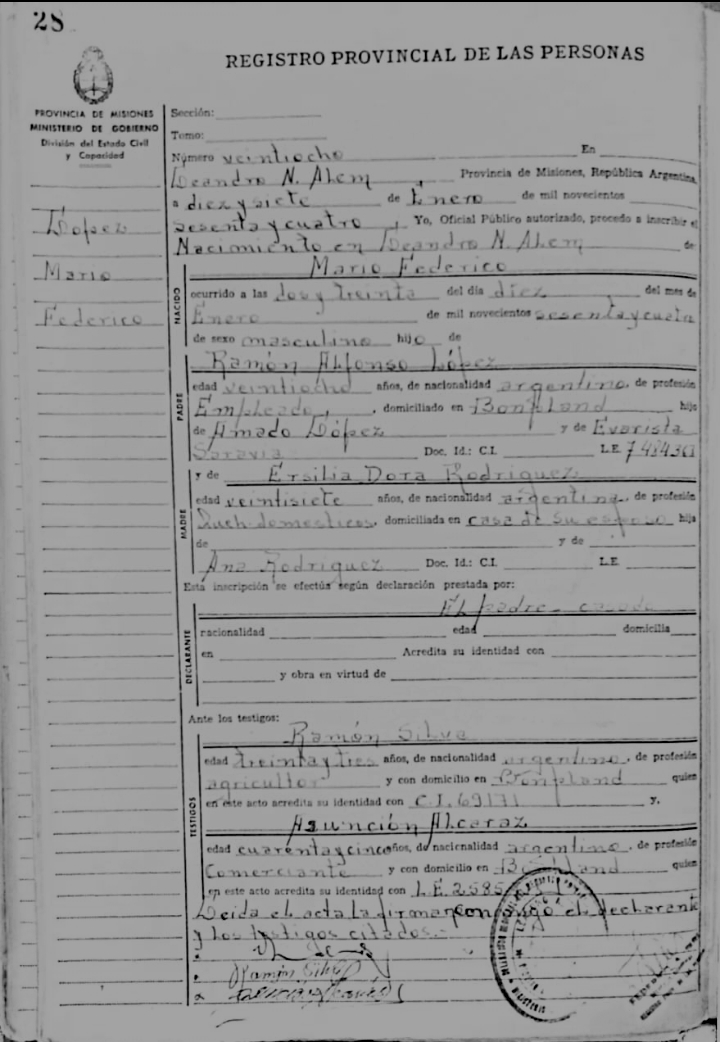 28
REGISTRO PROVINCIAL DE LAS PERSONAS
PROVINCIA DE MISIONES
MINISTERIO DE GOBIERNO
División del Estado Civil
y Capacidad
López
Mario
Federico
Sección:
Tomo:
Número veintiocho En
Leandro N. Alem, Provincia de Misiones, República Argentina,
a diez y siete de Enero de mil novecientos
sesenta y cuatro, Yo, Oficial Público autorizado, procedo a inscribir el
Nacimiento en Leandro N. Alem de
NACIDO
Mario Federico
ocurrido a las dos y treinta del día diez del mes de
Enero de mil novecientos sesenta y
de sexo masculino hijo de
PADRE
Ramón Alfonso López
edad veintiocho años, de nacionalidad argentino, de profesión
Empleado, domiciliado en Bonpland hijo
de Amado López y de Evarista
Saravia Doc. Id.: C.I. L.E.
MADRE
y de Ersilia Dora Rodriguez
edad veintisiete años, de nacionalidad argentina, de profesión
domesticos, domiciliada en casa de su esposo hija
de y de
Ana Rodriguez Doc. Id.: C.I. L.E.
Esta inscripción se efectús según declaración prestada por:
DECLARANTE
El padre
nacionalidad edad domicilia
en Acredita su identidad con
y obra en virtud de
Ante los testigos:
TESTIGOS
Ramón Silva
edad treinta y tres años, de nacionalidad argentino, de profesión
agricultor y con domicilio en Bonpland quien
en este acto acredita su identidad con C.I. 69171 y,
Asunción Alcaraz
edad cuarenta y cinco años, de nacionalidad argentino, de profesión
Comerciante y con domicilio en Bonpland quien
en este acto acredita su identidad con L.E. 2.585
Leida el acta la firman conmigo el declarante
y los testigos citados.-
Ramón Silva